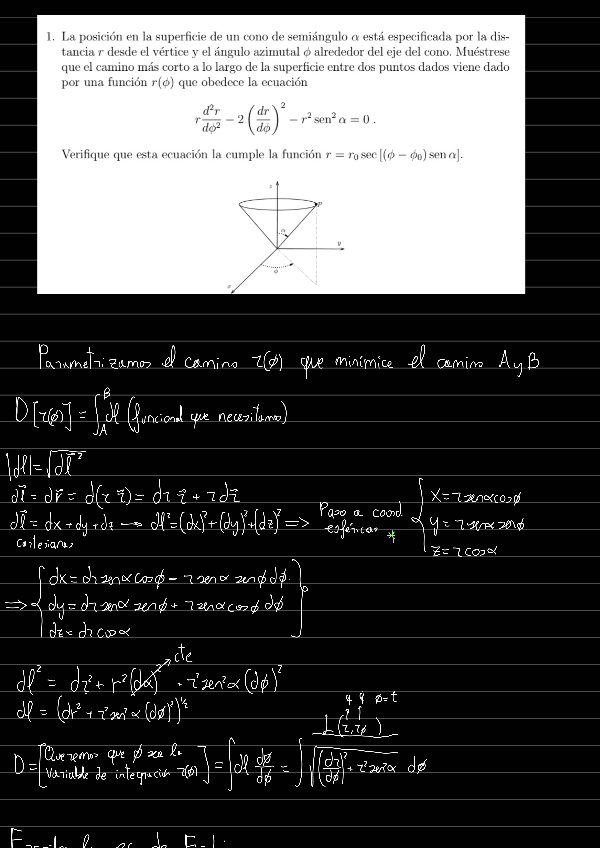 1. La posición en la superficie de un cono de semiángulo α está especificada por la dis-
tancia r desde el vértice y el ángulo azimutal ϕ alrededor del eje del cono. Muéstrese
que el camino más corto a lo largo de la superficie entre dos puntos dados viene dado
por una función r(ϕ) que obedece la ecuación
r d²r/dϕ² − 2 (dr/dϕ)² − r² sen² α = 0 .
Verifique que esta ecuación la cumple la función r = r₀ sec [(ϕ − ϕ₀) sen α].
z
P
α
y
ϕ
x
Parametrizamos el camino r(ϕ) que minimice el camino A y B
D[r(ϕ)] = ∫_A^B dl (funcional que necesitamos)
|dl| = √(dl⃗ ²)
dl⃗ = dr⃗ = d(r r⃗) = dr r⃗ + r dr⃗
dl⃗ = dx + dy + dz → dl² = (dx)² + (dy)² + (dz)² ⟹ Paso a coord
cartesianas
esféricas *
{ x = r senα cosϕ
y = r senα senϕ
z = r cosα
⟹ { dx = dr senα cosϕ − r senα senϕ dϕ
dy = dr senα senϕ + r senα cosϕ dϕ
dz = dr cosα }
cte
dl² = dr² + r²(dα)² + r² sen²α (dϕ)²
dl = (dr² + r² sen²α (dϕ)²)^½
q q̇ ϕ=t
L(r, rϕ)
D = [Queremos que ϕ sea la variable de integración r(ϕ)] = ∫ dl dϕ/dϕ = ∫ √((dr/dϕ)² + r² sen²α) dϕ